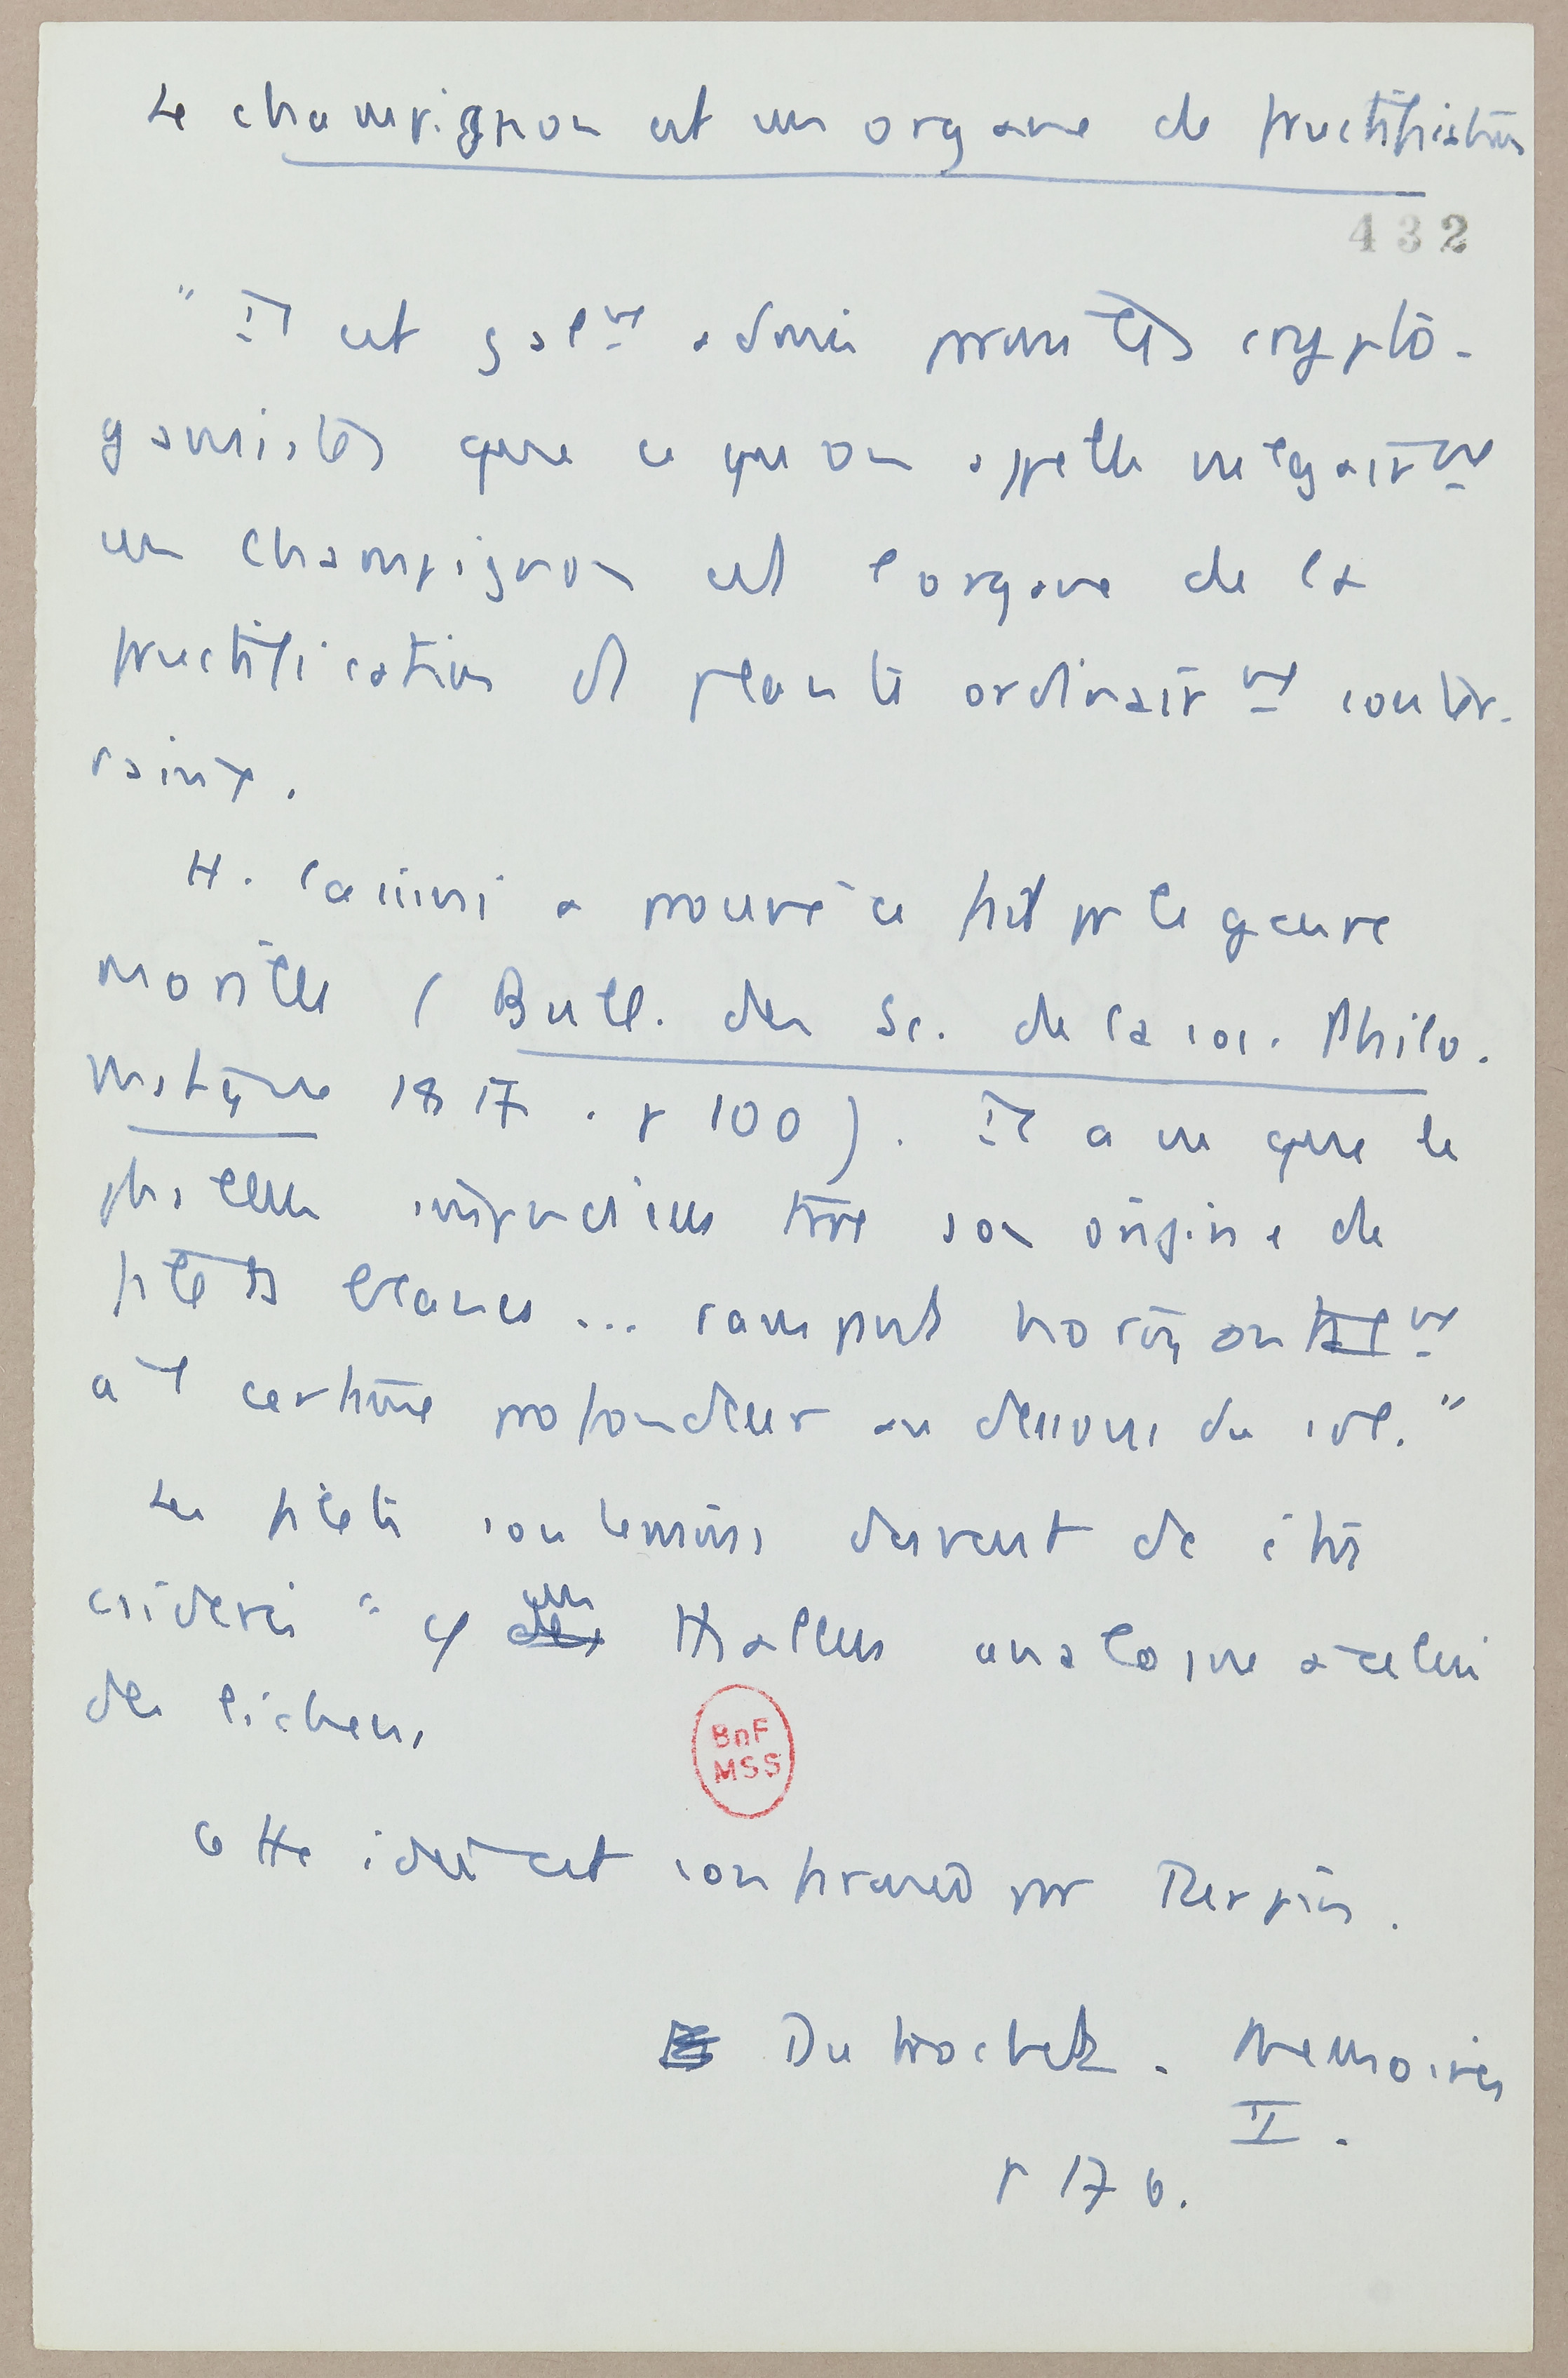 Le champignon est un organe de fructification
432
" Il est galmt admis parmi les crypto-
gamistes que ce qu'on appelle vulgairmt
un champignon est l'organe de la
fructification de plante ordinairmt souter-
raines.
H. Cassini a prouvé ce fait pr le genre
morille (Bull. des Sc. de la soc. Philo-
matique 1817. p 100). Il a vu que le
phallus impudicus tire son origine de
filets blancs ... rampent horizontalmt
à certaine profondeur au dessous du sol. "
Les filets souterrains devant être
considérés " cô un thallus analogue à celui
des lichens
Cette idée est confirmée par Turpin.
Dutrochet. Mémoires
II.
p 176.
BnF
MSS